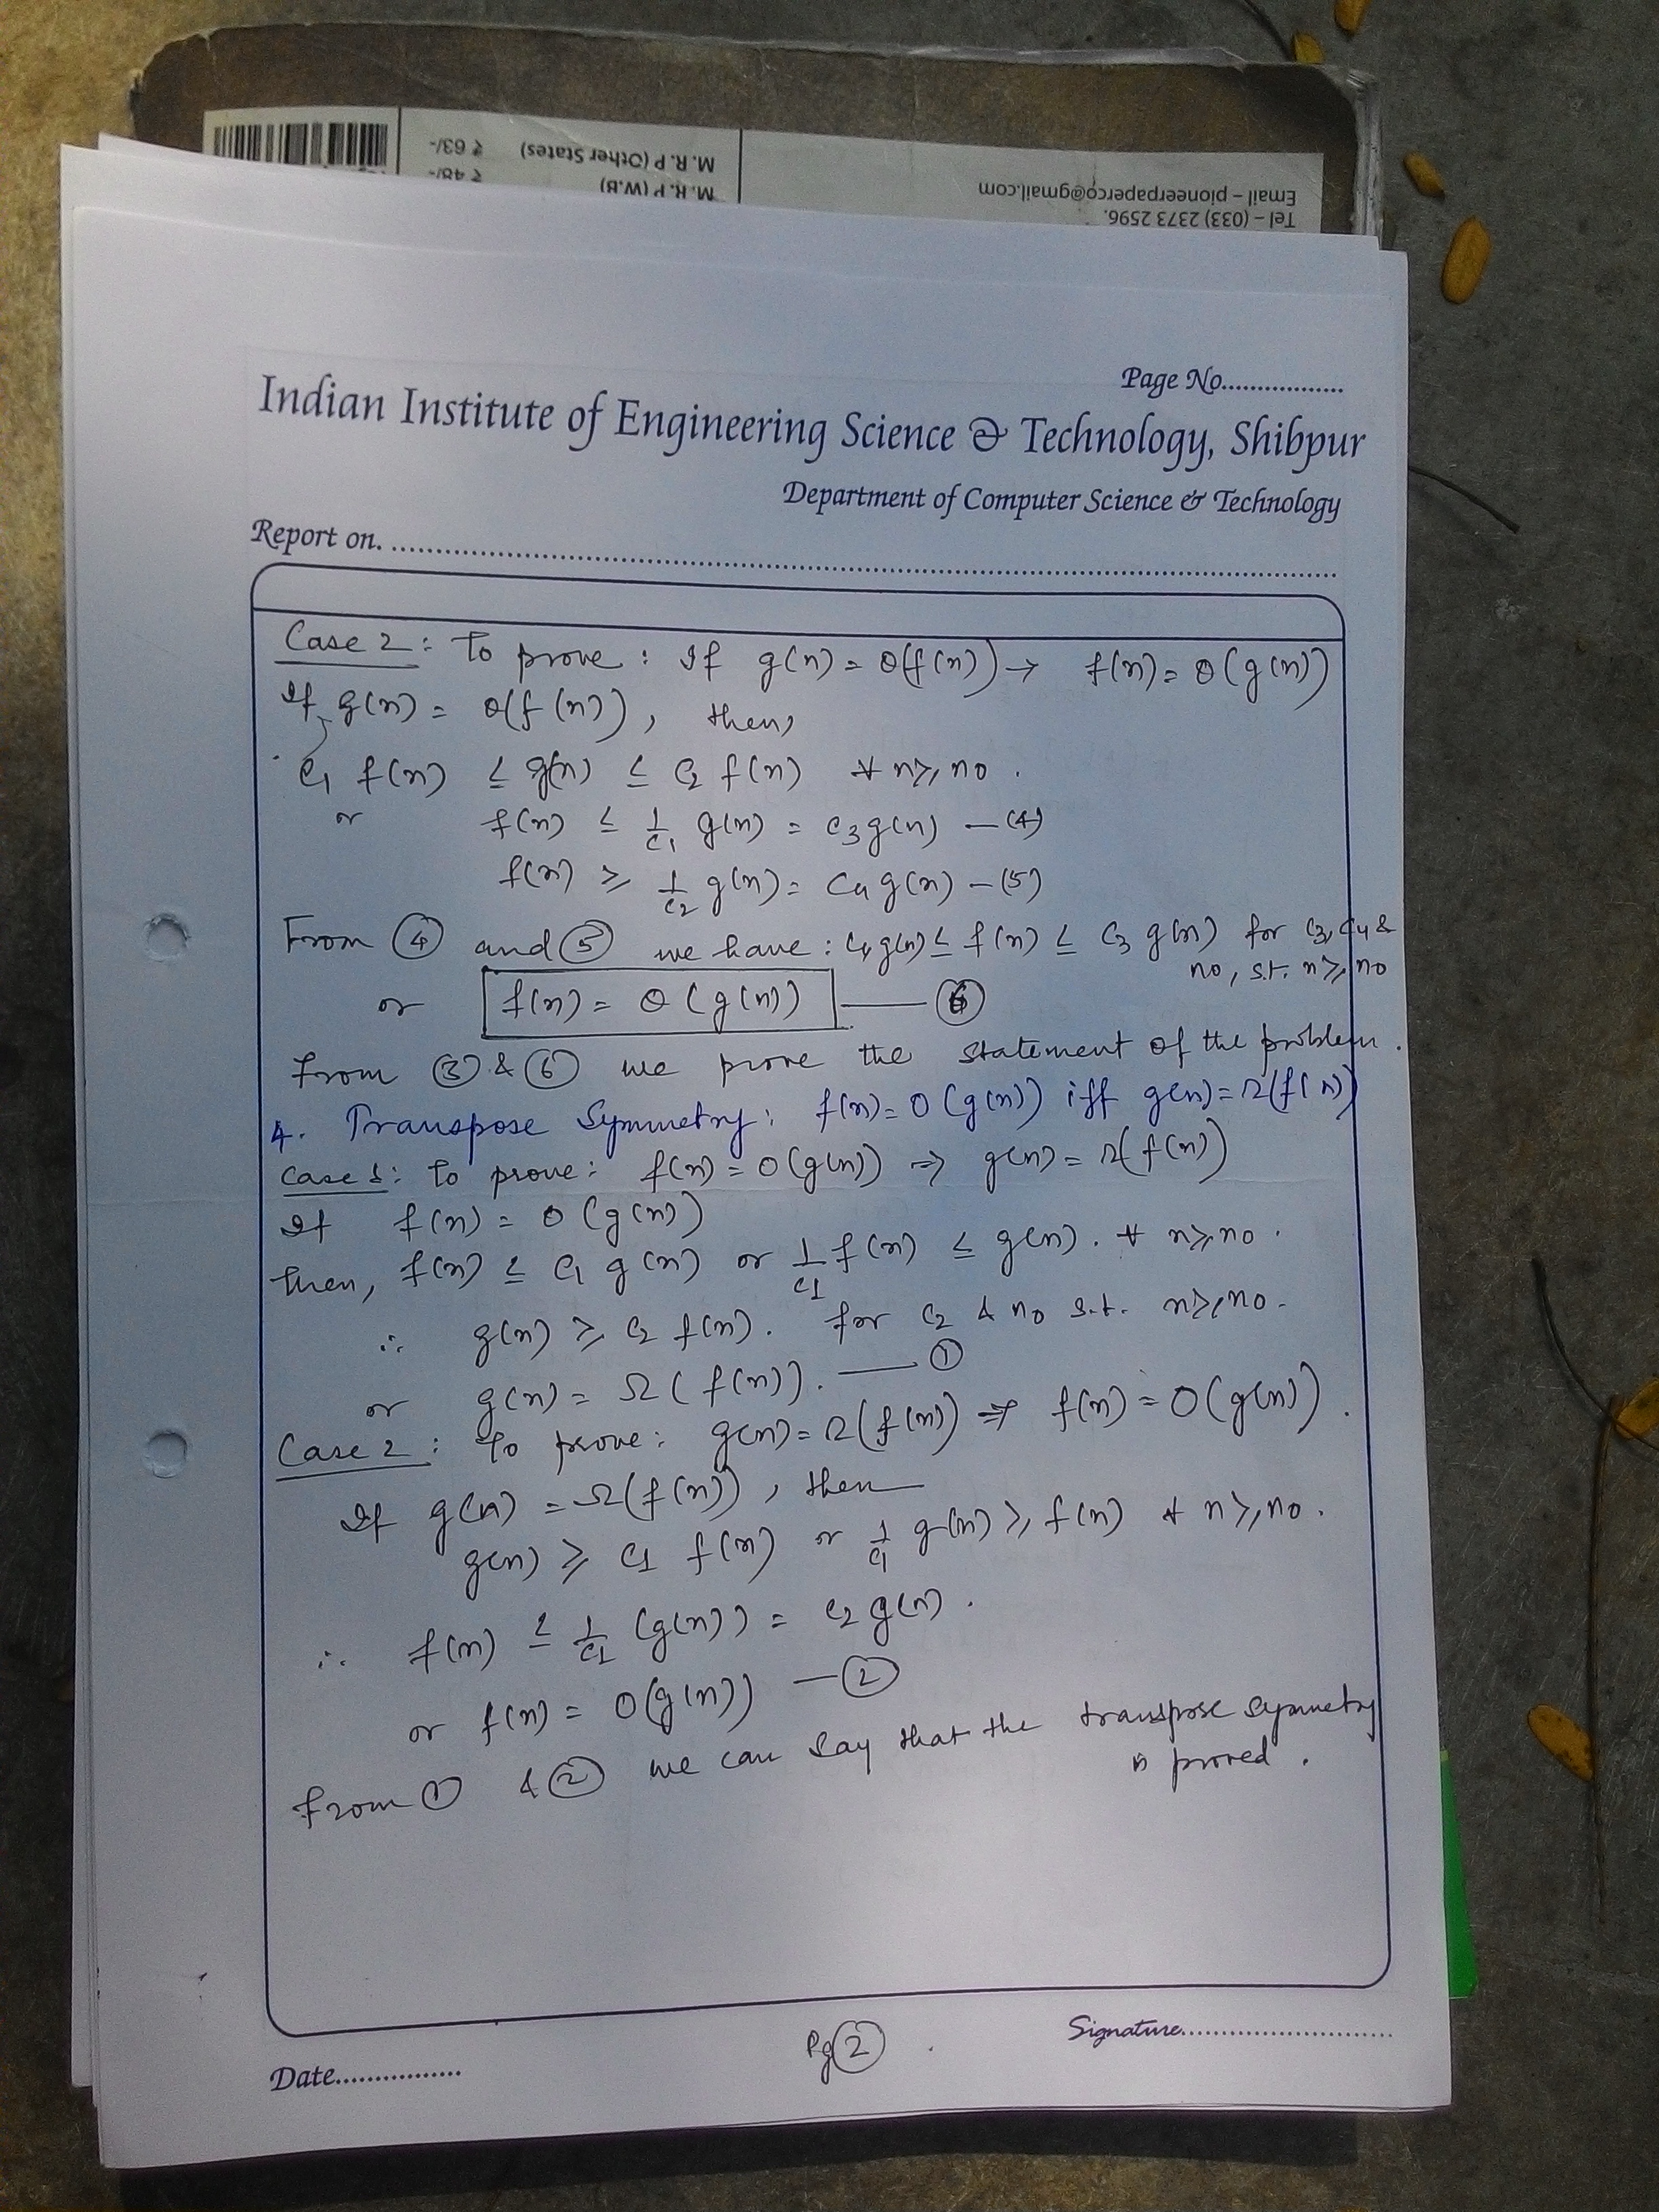 Page No..................
Indian Institute of Engineering Science & Technology, Shibpur
Department of Computer Science & Technology
Report on. ..................................................
Case 2: To prove: If g(n) = θ(f(n)) → f(n) = θ(g(n))
If, g(n) = θ(f(n)), then
c₁ f(n) ≤ g(n) ≤ c₂ f(n) ∀ n≥n₀.
or f(n) ≤ 1/c₁ g(n) = c₃g(n) —(4)
f(n) ≥ 1/c₂ g(n) = c₄ g(n) —(5)
From ④ and ⑤ we have: c₄g(n) ≤ f(n) ≤ c₃ g(n) for c₃, c₄ &
n₀, s.t. n≥n₀
or f(n) = θ(g(n)) — ⑥
From ③ & ⑥ we prove the statement of the problem.
4. Transpose Symmetry: f(n) = O(g(n)) iff g(n) = Ω(f(n))
Case 1: To prove: f(n) = O(g(n)) ⇒ g(n) = Ω(f(n))
If f(n) = O(g(n))
then, f(n) ≤ c₁ g(n) or 1/c₁ f(n) ≤ g(n). ∀ n≥n₀.
∴ g(n) ≥ c₂ f(n). for c₂ & n₀ s.t. n≥n₀.
or g(n) = Ω(f(n)). — ①
Case 2: To prove: g(n) = Ω(f(n)) ⇒ f(n) = O(g(n)).
If g(n) = Ω(f(n)), then —
g(n) ≥ c₁ f(n) or 1/c₁ g(n) ≥ f(n) ∀ n≥n₀.
∴ f(n) ≤ 1/c₁ (g(n)) = c₂ g(n).
or f(n) = O(g(n)) — ②
From ① & ② we can say that the transpose symmetry
is proved.
Date..................
Pg ②
Signature..............................
Tel – (033) 2373 2596.
Email – pioneerpaperco@gmail.com
M. R. P (W.B) ₹ 48/-
M. R. P (Other States) ₹ 63/-